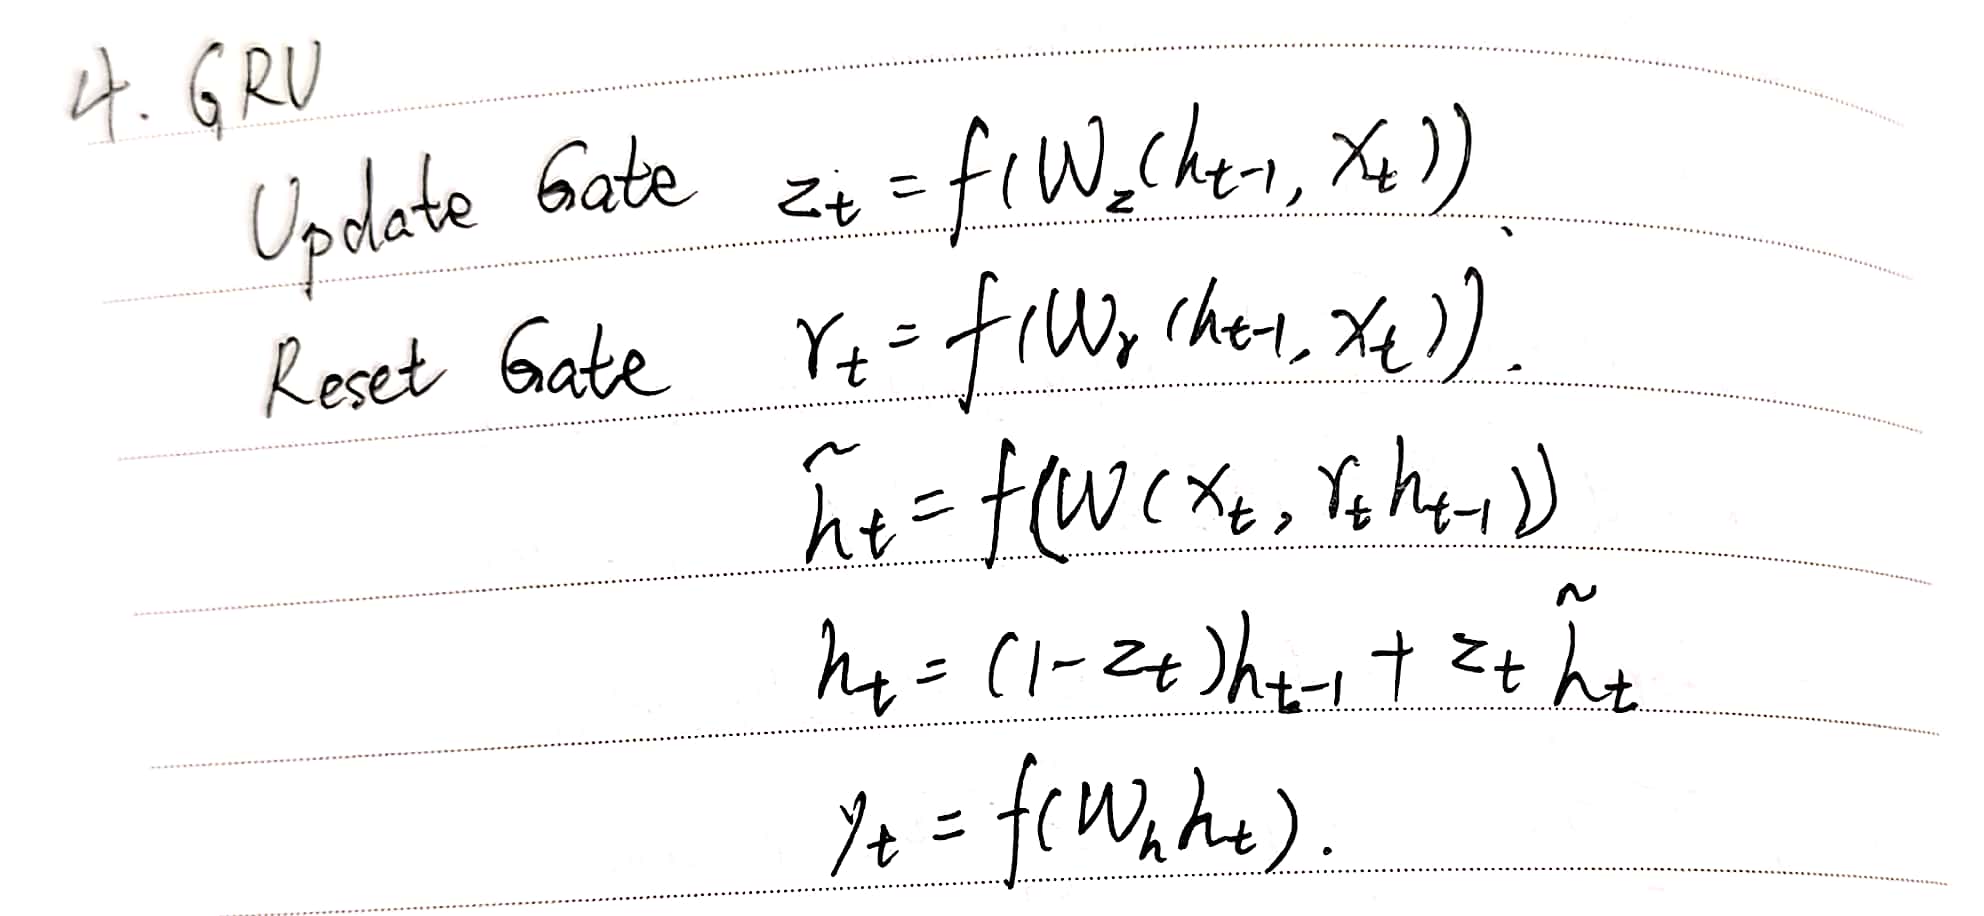 4. GRU
Update Gate z_t = f(W_z(h_{t-1}, x_t)).
Reset Gate r_t = f(W_r(h_{t-1}, x_t)).
h̃_t = f(W(x_t, r_t h_{t-1}))
h_t = (1-z_t)h_{t-1} + z_t h̃_t
y_t = f(W_h h_t).